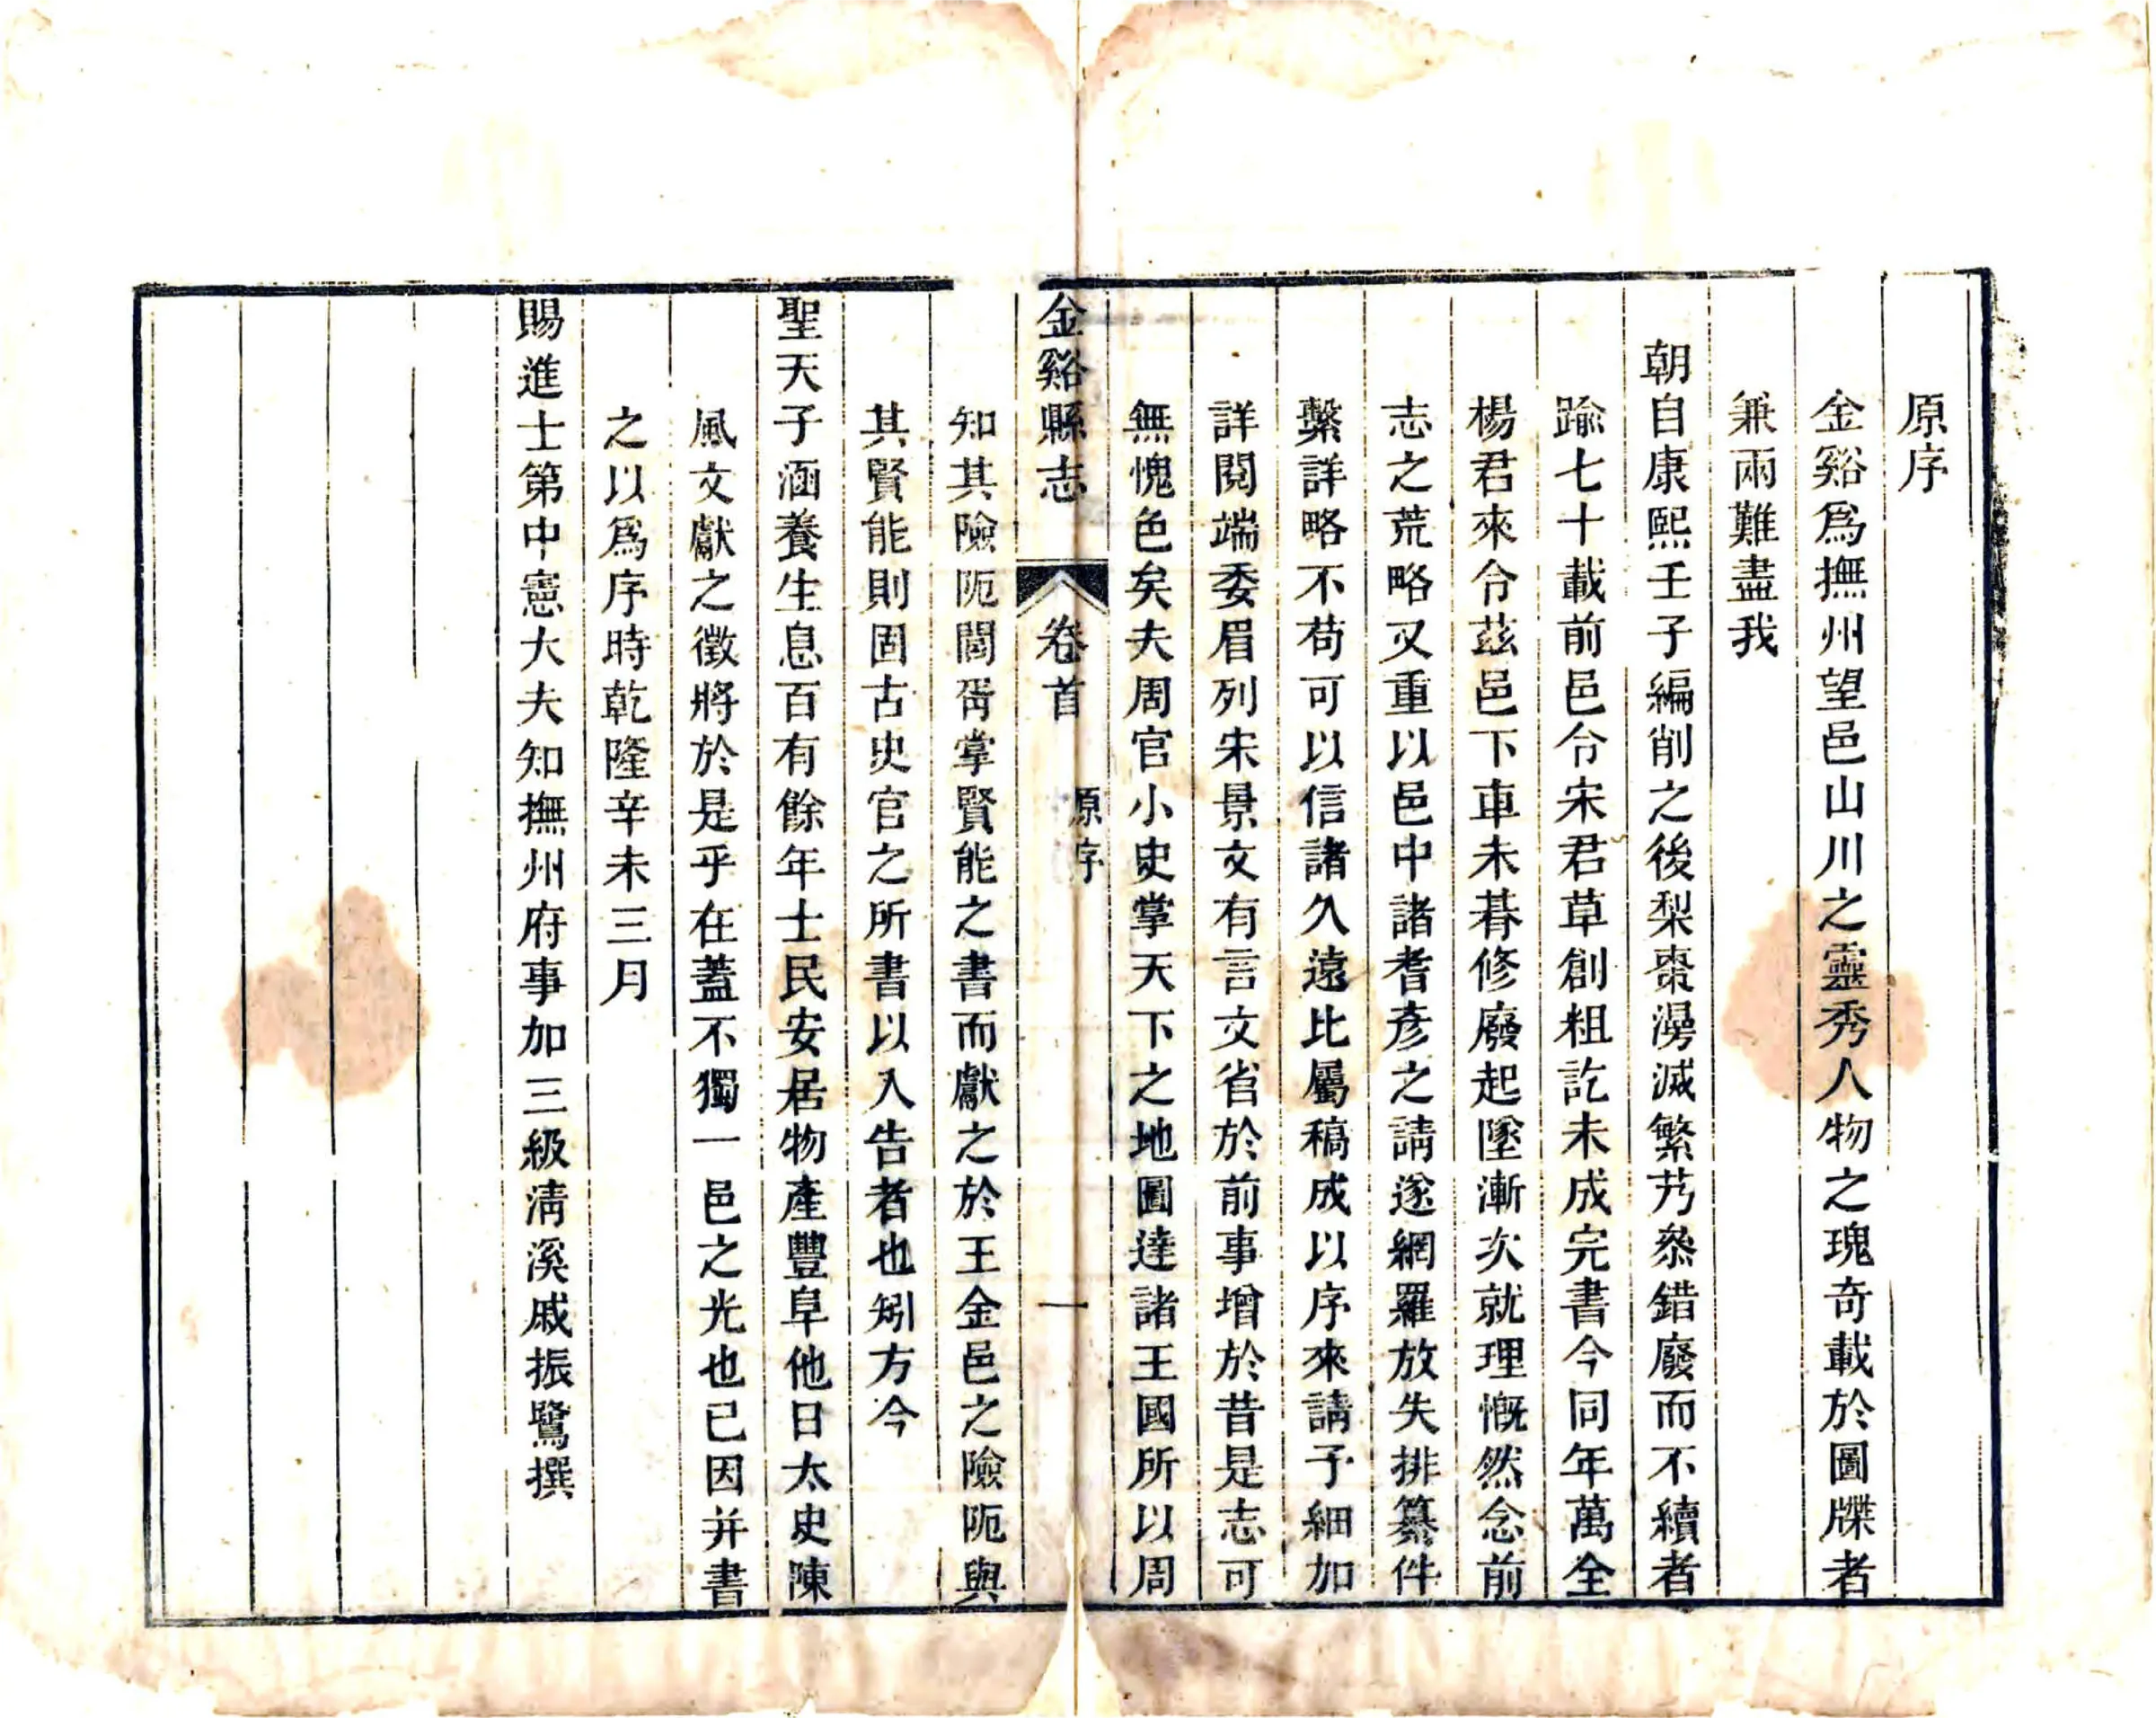 原序
金谿爲撫州望邑山川之靈秀人物之瑰奇載於圖牒者
兼兩難盡我
朝自康熙壬子編削之後梨棗漫滅繁艿叅錯廢而不續者
踰七十載前邑令宋君草創粗訖未成完書今同年萬全
楊君來令茲邑下車未朞修廢起墜漸次就理慨然念前
志之荒略又重以邑中諸耆彥之請遂網羅放失排纂件
繫詳略不苟可以信諸久遠比屬稿成以序來請予細加
詳閱端委眉列宋景文有言文省於前事增於昔是志可
無愧色矣夫周官小史掌天下之地圖達諸王國所以周
金谿縣志
卷首
原序
一
知其險阨閭胥掌賢能之書而獻之於王金邑之險阨與
其賢能則固古史官之所書以入告者也矧方今
聖天子涵養生息百有餘年士民安居物產豐阜他日太史陳
風文獻之徵將於是乎在蓋不獨一邑之光也已因并書
之以爲序時乾隆辛未三月
賜進士第中憲大夫知撫州府事加三級淸溪戚振鷺撰